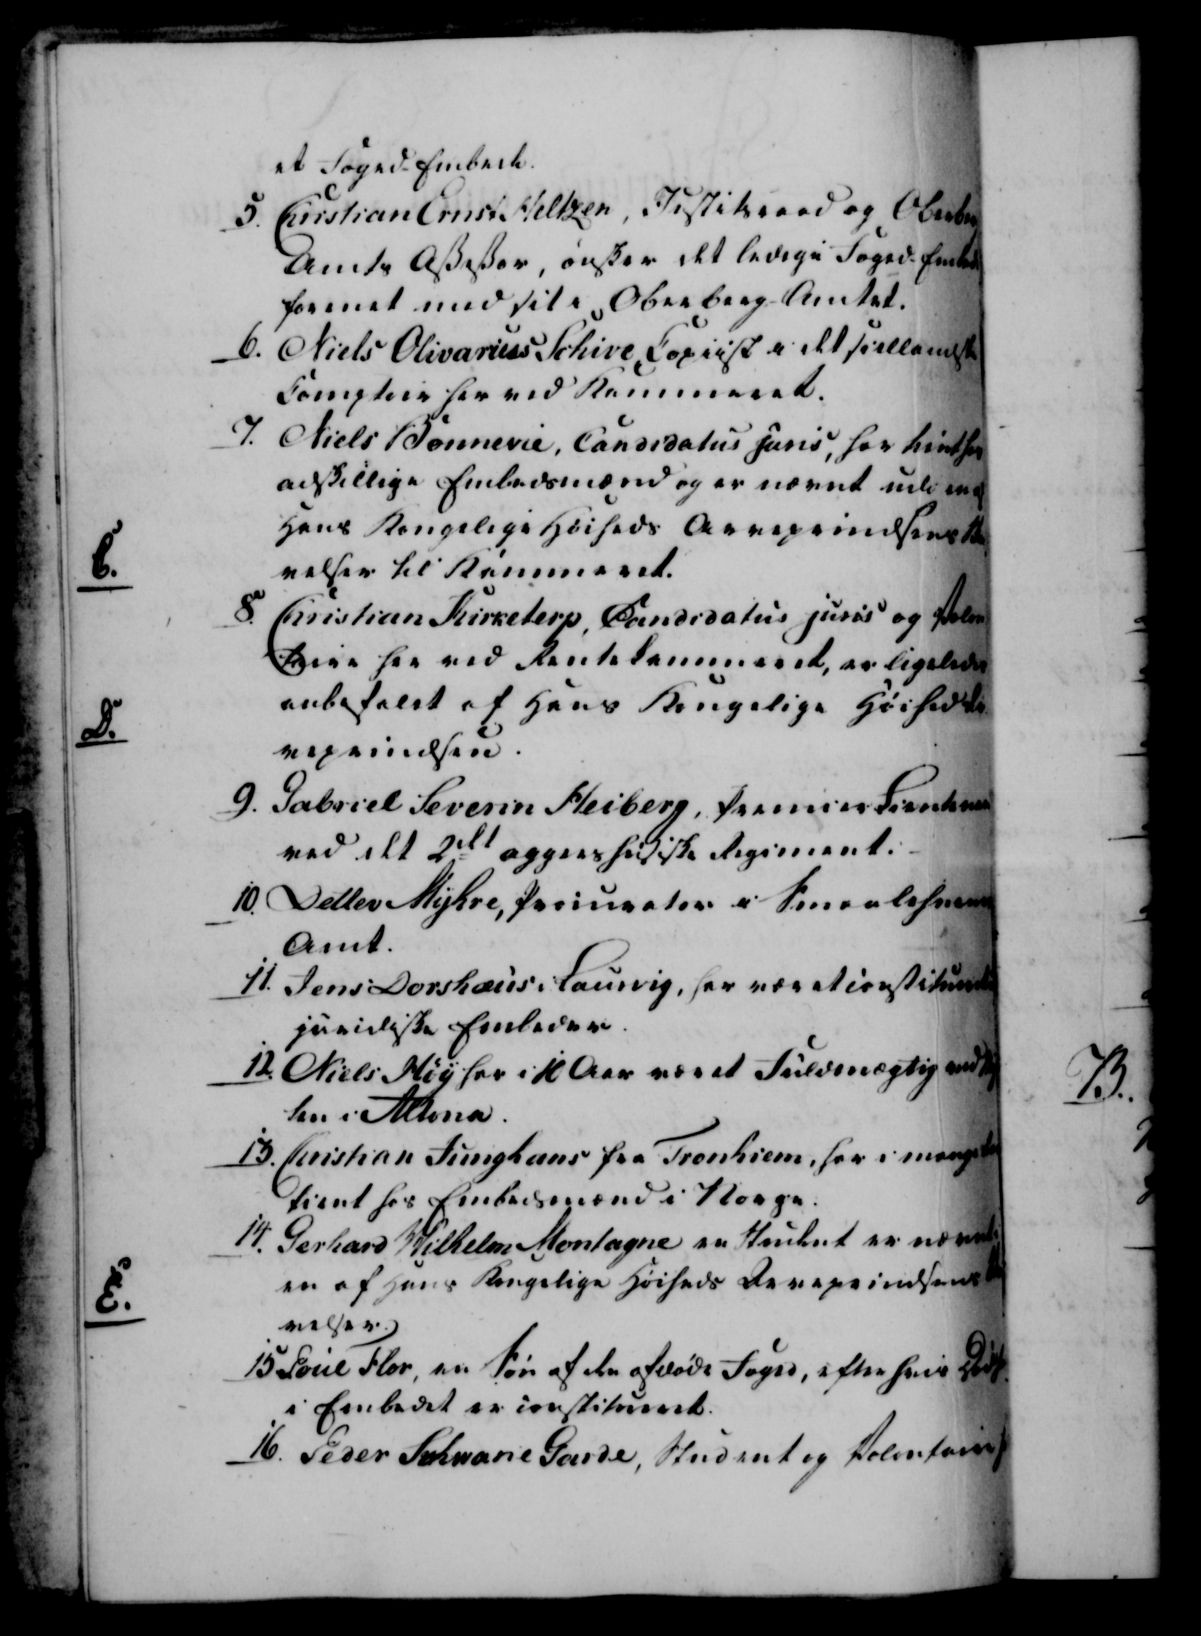 et Foged-Embede.
5. Christian Ernst Heltzen, Justitsraad og Oberberg
Amts Assessor, ønsker det ledige Foged-Embede
forenet med sit i Oberberg-Amtet.
6. Niels Olivarius Schive, Copiist i det siellandske
Comptoir her ved Kammeret.
7. Niels Bonnevie, Candidatus juris, har tient hos
adskillige Embedsmænd og er nævnt udi en af
Hans Kongelige Høiheds Arveprindsens Skri
velser til Kammeret.
C.
8. Christian Kirketerp, Candidatus juris og Volon
taire her ved Rentekammeret, er ligeledes
anbefalet af Hans Kongelige Høihed Ar
veprindsen.
D.
9. Gabriel Severin Heiberg, Premier Lieutenant
ved det 2det aggershusiske Regiment.
10. Detlev Myhre, Procurator i Smaalehnenes
Amt.
11. Jens Dorshæus i Laurvig, har været constitueret i
juridiske Embeder.
12. Niels Höy har i 10 Aar været Fuldmægtig ved
ten i Altona.
13. Christian Junghans fra Tronhiem, har i mange Aar
tient hos Embedsmænd i Norge.
14. Gerhard Wilhelm Montagne en Student er nævnt i
en af Hans Kongelige Høiheds Arveprindsens Skri
velser.
E.
15. Poul Flor, en Søn af den afdøde Foged, efter hvis Död
i Embedet er constitueret.
16. Peder Schwane Garde, Student og Volontaire
B.